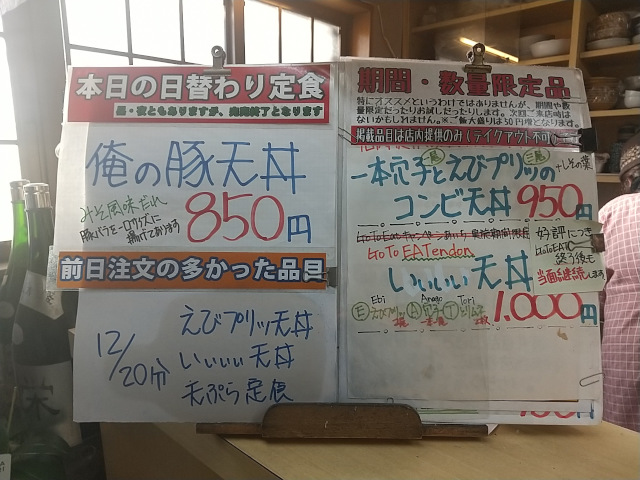 本日の日替わり定食
昼・夜ともありますが、売切終了となります
俺の豚天丼
みそ風味だれ
豚バラを一口サイズに
揚げております
850円
前日注文の多かった品目
12/20分
えびプリッ天丼
いいいい天丼
天ぷら定食
期間・数量限定品
特にオススメというわけではありませんが、期間や数
量限定だったりお試しだったりします。次回ご来店時は
ないかもしれません。※ご飯大盛りは50円増となります。
掲載品目は店内提供のみ(テイクアウト不可)
一本穴子とえびプリッの
一尾
三尾
+しその葉
コンビ天丼 950円
GoToEatキャンペーン
GoTo EATendon
好評につき
GoToEATC
終了後も
当面継続します
いいいい天丼
Ebi
Anago
Tori
Eえびプリッ
A穴子
T
1.000円